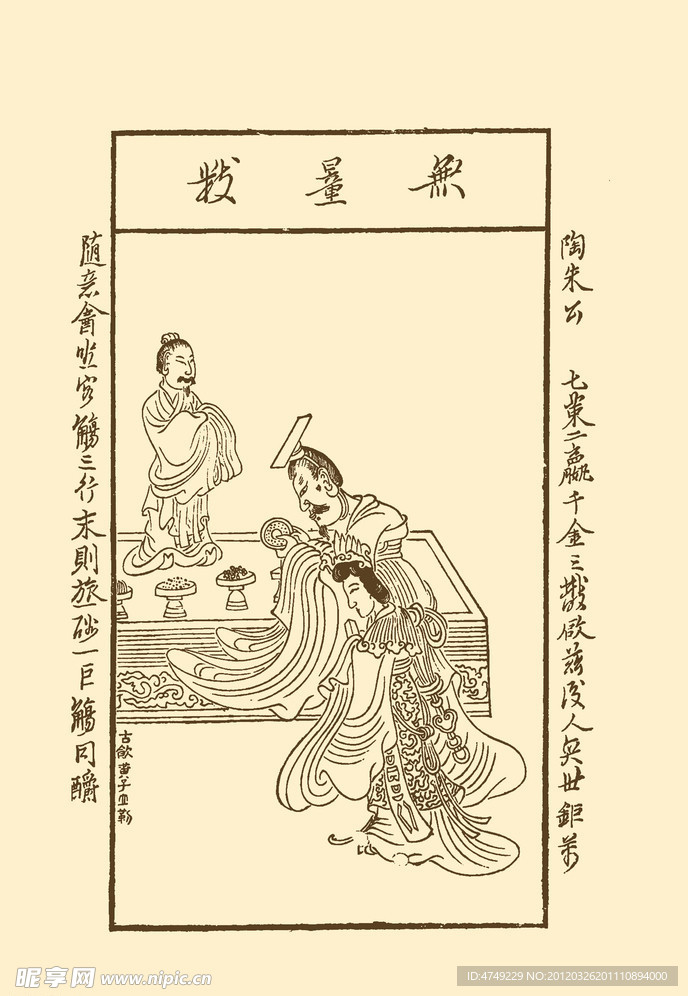 無量數
陶朱公 七策二贏千金三散 後人奕世鉅萬
随意會 客觴三行末則旅 一巨觴同釂
古歙黄子立勒
昵享网 www.nipic.cn
ID:4749229 NO:20120326201110894000